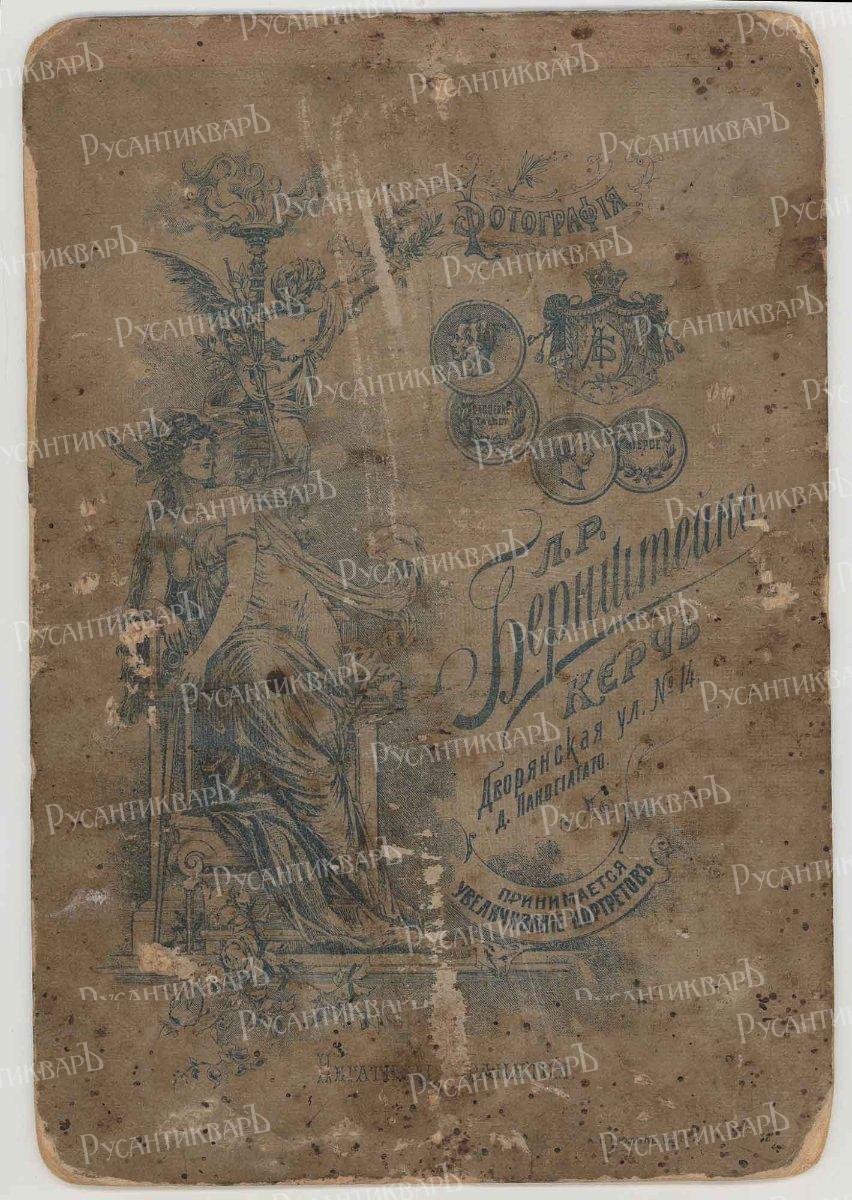 Фотографія
Л. Р.
Бернштейнъ
КЕРЧЬ
Дворянская ул. № 14.
д. Паносіатато.
ПРИНИМАЕТСЯ
УВЕЛИЧИВАНІЕ ПОРТРЕТОВЪ
Негативы
РусАнтикваръ